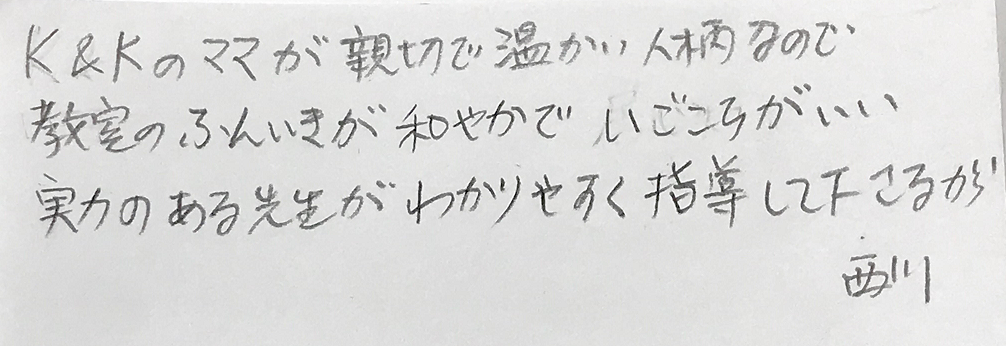 K&Kのママが親切で温かい人柄なので
教室のふんいきが和やかで いごこちがいい
実力のある先生がわかりやすく指導して下さるが
西川